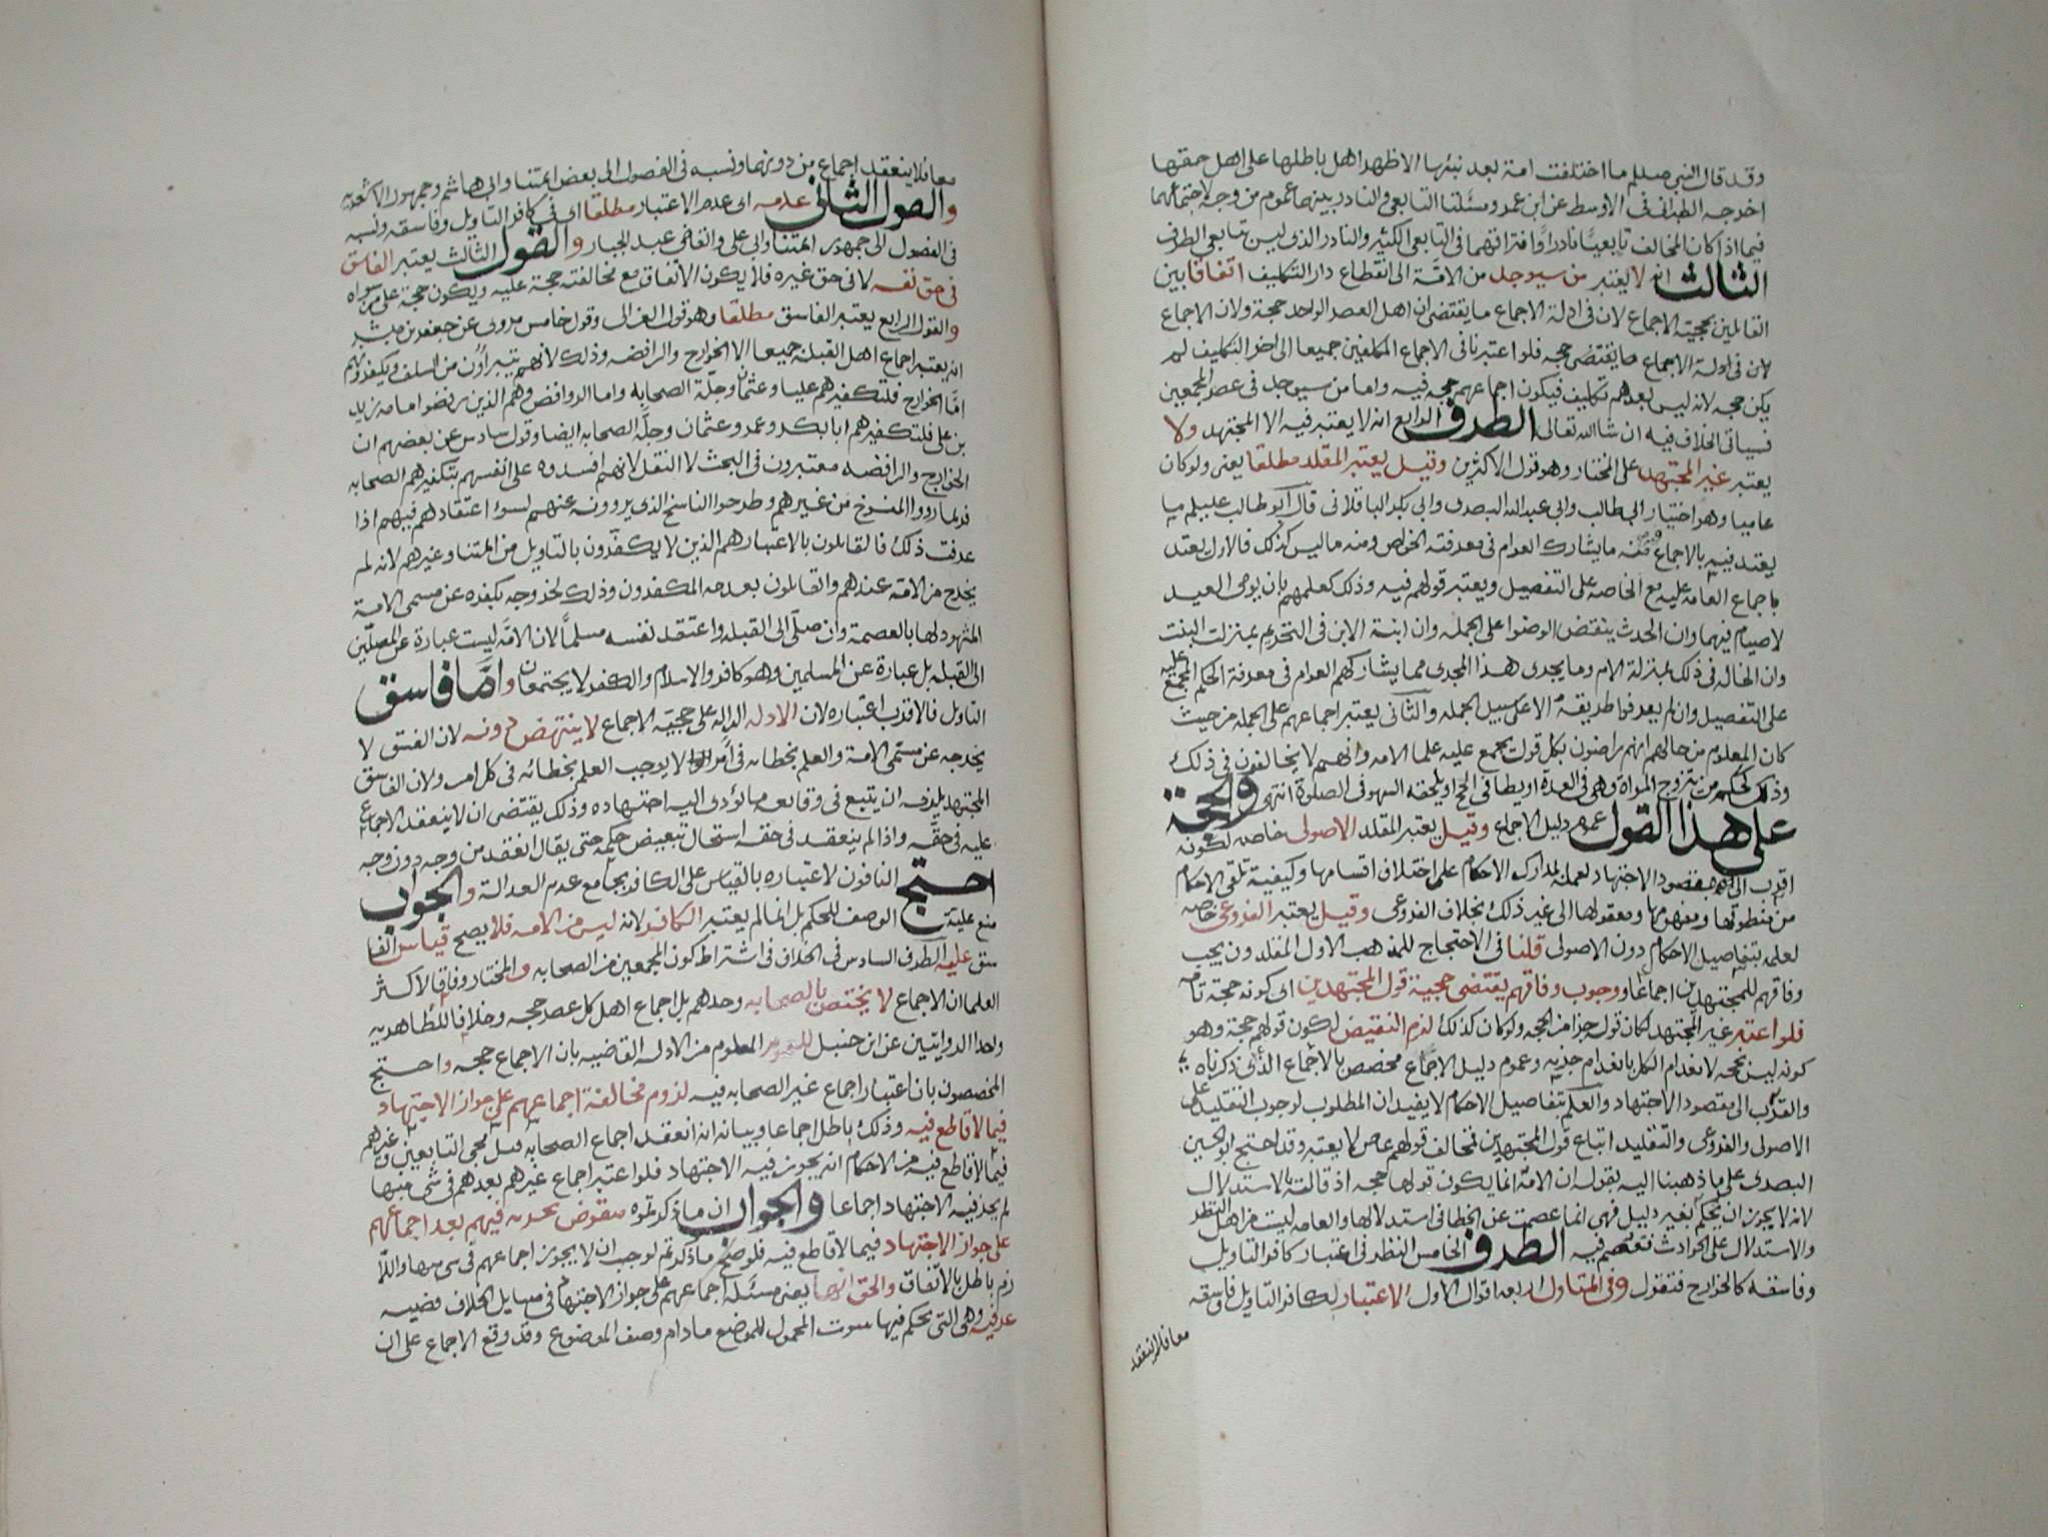 وقد قال النبي صلم ما اختلفت امة بعد نبيها الا ظهر اهل باطلها على اهل حقها
اخرجه الطبراني في الاوسط عن ابن عمر ومسئلتا التابعي والنادر بينهما عموم من وجه لاجتماعهما
فيما اذا كان المخالف تابعيا نادرا وافتراقهما في التابعي الكثير والنادر الذي ليس تابعي الطرف
الثالث انه لا يعتبر من سيوجد من الامة الى انقطاع دار التكليف اتفاقا بين
القائلين بحجية الاجماع لان في ادلة الاجماع ما يقتضي ان اهل العصر الواحد حجة ولان الاجماع
لان في ادلة الاجماع ما يقتضي حجه فلو اعتبرنا في الاجماع المكلفين جميعا الى اخر التكليف لم
يكن حجه لانه ليس بعدهم تكليف فيكون اجماعهم حجه فيه واما من سيوجد في عصر المجمعين
فسياتي الخلاف فيه ان شا الله تعالى الطرف الرابع انه لا يعتبر فيه الا المجتهد ولا
يعتبر غير المجتهد على المختار وهو قول الاكثرين وقيل يعتبر المقلد مطلقا يعني ولو كان
عاميا وهو اختيار ابي طالب وابي عبد الله البصري وابي بكر الباقلاني قال ابو طالب عليلم ما
يعتد فيه بالاجماع منه ما يشارك العوام في معرفته الخواص ومنه ما ليس كذلك فالاول يعتد
باجماع العامه عليه مع الخاصه على التفصيل ويعتبر قولهم فيه وذلك كعلمهم بان يومي العيد
لا صيام فيهما وان الحدث ينقض الوضوا على الجمله وان ابنة الابن في التحريم بمنزلت البنت
وان الخاله في ذلك بمنزلة الام وما يجري هذا المجرى مما يشاركهم العوام في معرفة الحكم المجمع عليه
على التفصيل وان لم يعرفوا طريقه الا على سبيل الجمله والثاني يعتبر اجماعهم على الجمله من حيث
كان المعلوم من حالهم انهم راضون بكل قول يجمع عليه علما الامه وانهم لا يخالفون في ذلك
وذلك كحكم من يتزوج المراة وهي في العدة او يطا في الحج او يلحقه السهو في الصلوة انتهى والحجة
على هذا القول عموم دليل الاجماع وقيل يعتبر المقلد الاصولي خاصه لكونه
اقرب الى مقصود الاجتهاد لعمله بمدارك الاحكام على اختلاف اقسامها وكيفية تلقي الاحكام
من منطوقها ومفهومها ومعقولها الى غير ذلك بخلاف الفروعي وقيل يعتبر الفروعي خاصه
لعلمه بتفاصيل الاحكام دون الاصولي قلنا في الاحتجاج للمذهب الاول المقلدون يجب
وفاقهم للمجتهدين اجماعا ووجوب وفاقهم يقتضي حجية قول المجتهدين اي كونه حجة تامه
فلو اعتبر غير المجتهد لكان قوله جزا من الحجه ولو كان كذلك لزم النقيض لكون قولهم حجة وهو
كونه ليس بحجه لانعدام الكل بانعدام جزيه وعموم دليل الاجماع مخصص بالاجماع الذي ذكرناه
والقرب الى مقصود الاجتهاد والعلم بتفاصيل الاحكام لا يفيدان المطلوب لوجوب التقليد على
الاصولي والفروعي والتقليد اتباع قول المجتهدين فمخالف قولهم عاص لا يعتبر وقد احتج ابو الحسين
البصري على ما ذهبنا اليه بقوله ان الامة انما يكون قولها حجه اذ قالته بالاستدلال
لانه لا يجوز ان يحكم بغير دليل فهي انما عصمت عن الخطا في استدلالها والعامه ليست من اهل النظر
والاستدلال على الحوادث فتعصم فيه الطرف الخامس النظر في اعتبار كافر التاويل
وفاسقه كالخوارج فنقول وفي المتاول اربعه اقوال الاول الاعتبار لكافر التاويل وفاسقه
معا فلا ينعقد
معا فلا ينعقد اجماع من دونهما ونسبه في الفصول الى بعض ائمتنا وابي هاشم وجمهور الاشعريه
والقول الثاني عدمه اي عدم الاعتبار مطلقا اي في كافر التاويل وفاسقه ونسبه
في الفصول الى جمهور ائمتنا وابي علي والقاضي عبد الجبار والقول الثالث يعتبر الفاسق
في حق نفسه لا في حق غيره فلا يكون الاتفاق مع مخالفته حجة عليه ويكون حجة على من سواه
والقول الرابع يعتبر الفاسق مطلقا وهو قول الغزالي وقول خامس مروي عن جعفر بن مبشر
انه يعتبر اجماع اهل القبلة جميعا الا الخوارج والرافضه وذلك لانهم يتبراون من السلف ويكفرونهم
اما الخوارج فلتكفيرهم عليا وعثمان وجلة الصحابه واما الروافض وهم الذين رفضوا امامه زيد
بن علي فلتكفيرهم ابا بكر وعمر وعثمان وجلة الصحابه ايضا وقول سادس عن بعضهم ان
الخوارج والرافضه معتبرون في البحث لا النقل لانهم افسدوه على انفسهم بتكفيرهم الصحابه
فربما رووا المنسوخ من غيرهم وطرحوا الناسخ الذي يروونه عنهم لسوء اعتقادهم فيهم اذا
عرفت ذلك فالقائلون بالاعتبار هم الذين لا يكفرون بالتاويل من ائمتنا وغيرهم لانه لم
يخرج من الامه عندهم والقائلون بعدمه المكفرون وذلك لخروجه بكفره عن مسمى الامة
المشهود لها بالعصمة وان صلى الى القبله واعتقد نفسه مسلما لان الامة ليست عبارة عن المصلين
الى القبله بل عبارة عن المسلمين وهو كافر والاسلام والكفر لا يجتمعان واما فاسق
التاويل فالاقرب اعتباره لان الادله الداله على حجية الاجماع لا ينتهض دونه لان الفسق لا
يخرجه عن مسمى الامة والعلم بخطائه في امر لا يوجب العلم بخطائه في كل امر ولان الفاسق
المجتهد يلزمه ان يتبع في وقايعه ما يؤدي اليه اجتهاده وذلك يقتضي ان لا ينعقد الاجماع
عليه في حقه واذا لم ينعقد في حقه استحال تبعيض حكمه حتى يقال انعقد من وجه دون وجه
احتج النافون لاعتباره بالقياس على الكافر بجامع عدم العدالة والجواب
منع علية الوصف للحكم بل انما لم يعتبر الكافر لانه ليس من الامه فلا يصح قياس الفا
سق عليه الطرف السادس في الخلاف في اشتراط كون المجمعين من الصحابه والمختار وفاقا لاكثر
العلما ان الاجماع لا يختص بالصحابه وحدهم بل اجماع اهل كل عصر حجه وخلافا للظاهريه
واحد الروايتين عن ابن حنبل للعموم المعلوم من الادله القاضيه بان الاجماع حجه واحتج
المخصصون بان اعتبار اجماع غير الصحابه فيه لزوم مخالفة اجماعهم على جواز الاجتهاد
فيما لا قاطع فيه وذلك باطل اجماعا وبيانه انه انعقد اجماع الصحابه قبل مجي التابعين وغيرهم
فيما لا قاطع فيه من الاحكام انه يجوز فيه الاجتهاد فلو اعتبر اجماع غيرهم بعدهم في شي منها
لم يجز فيه الاجتهاد اجماعا والجواب ان ما ذكرتموه منقوض بجريه فيهم بعد اجماعهم
على جواز الاجتهاد فيما لا قاطع فيه فلو صح ما ذكرتم لوجب ان لا يجوز اجماعهم في شي منها واللا
زم باطل بالاتفاق والحق انها يعني مسئلة اجماعهم على جواز الاجتهاد في مسايل الخلاف قضيه
عرفيه وهي التي يحكم فيها بثبوت المحمول للموضوع مادام وصف الموضوع وقد وقع الاجماع على ان